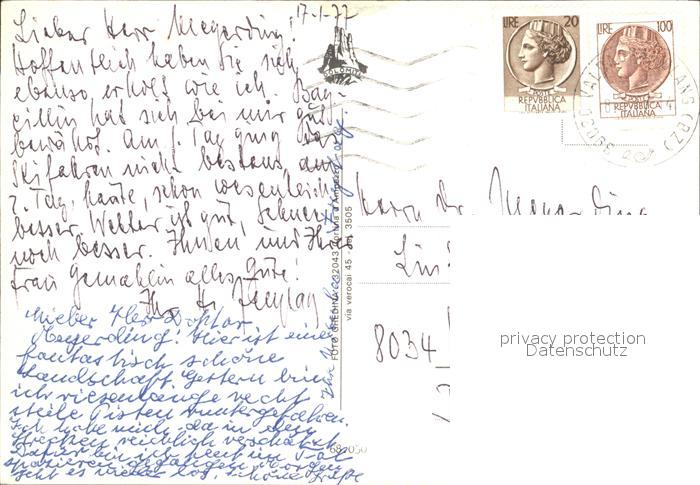 17-1-77
Lieber Herr Meyerding!
Hoffentlich haben Sie sich
ebenso erholt wie ich.
hat sich bei mir gut
bewährt. Am 1. Tag ging das
Skifahren nicht bestens, am
2. Tag, heute, schon wesentlich
besser. Wetter ist gut, Schnee
noch besser. Ihnen und Ihrer
Frau Gemahlin alles Gute!
Ihr H. Freytag
Lieber Herr Doktor
Meyerding! Hier ist eine
fantastisch schöne
Landschaft. Gestern bin
ich riesenlange recht
steile Pisten runtergefahren.
Ich habe mich da in den
Strecken reichlich verschätzt.
Dafür bin ich heut im Tal
spazieren gegangen. Morgen
geht es wieder los. Schöne Grüße
DOLOMITI
FOTO GHEDINA - 32043 Cortina d'Ampezzo
via verocai 45 - 3505
LIRE 20
POSTE
REPVBBLICA
ITALIANA
LIRE 100
REPVBBLICA
ITALIANA
Herrn Dr. Meyerding
8034
privacy protection
Datenschutz